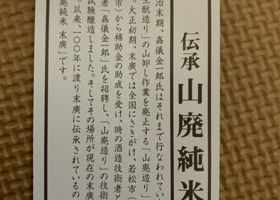 伝承 山廃純米
治末期、嘉儀金一郎氏はそれまで行なわれてい
生酛造り」の山卸し作業を廃止する「山廃造り」
。大正初期、末廣では全国にさきがけ、若松市（
市）から補助金の助成を受け、時の酒造技術者と
者「嘉儀金一郎」氏を招聘し、「山廃造り」の技術
試験醸造しました。そしてその場所が現在の末廣
以来、一〇〇年に渡り末廣に伝承されているの
廃純米 末廣」です。